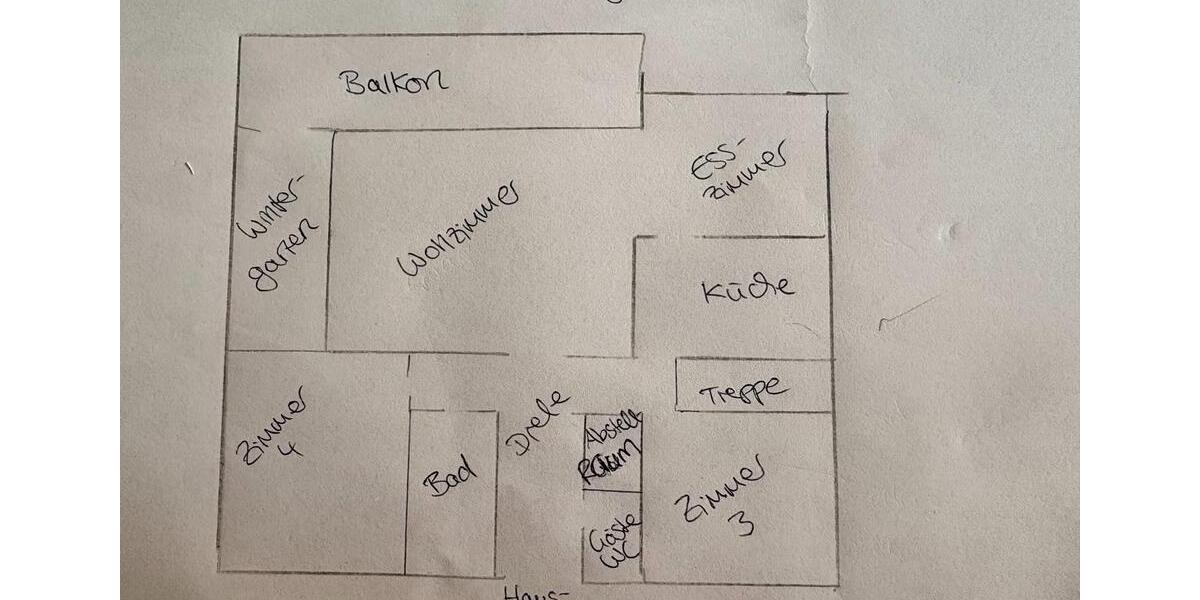 Balkon
Ess-
zimmer
Winter-
garten
Wohzimmer
Küche
Treppe
Zimmer
4
Diele
Abstell
Raum
Bad
Zimmer
3
Gäste
WC
Haus-